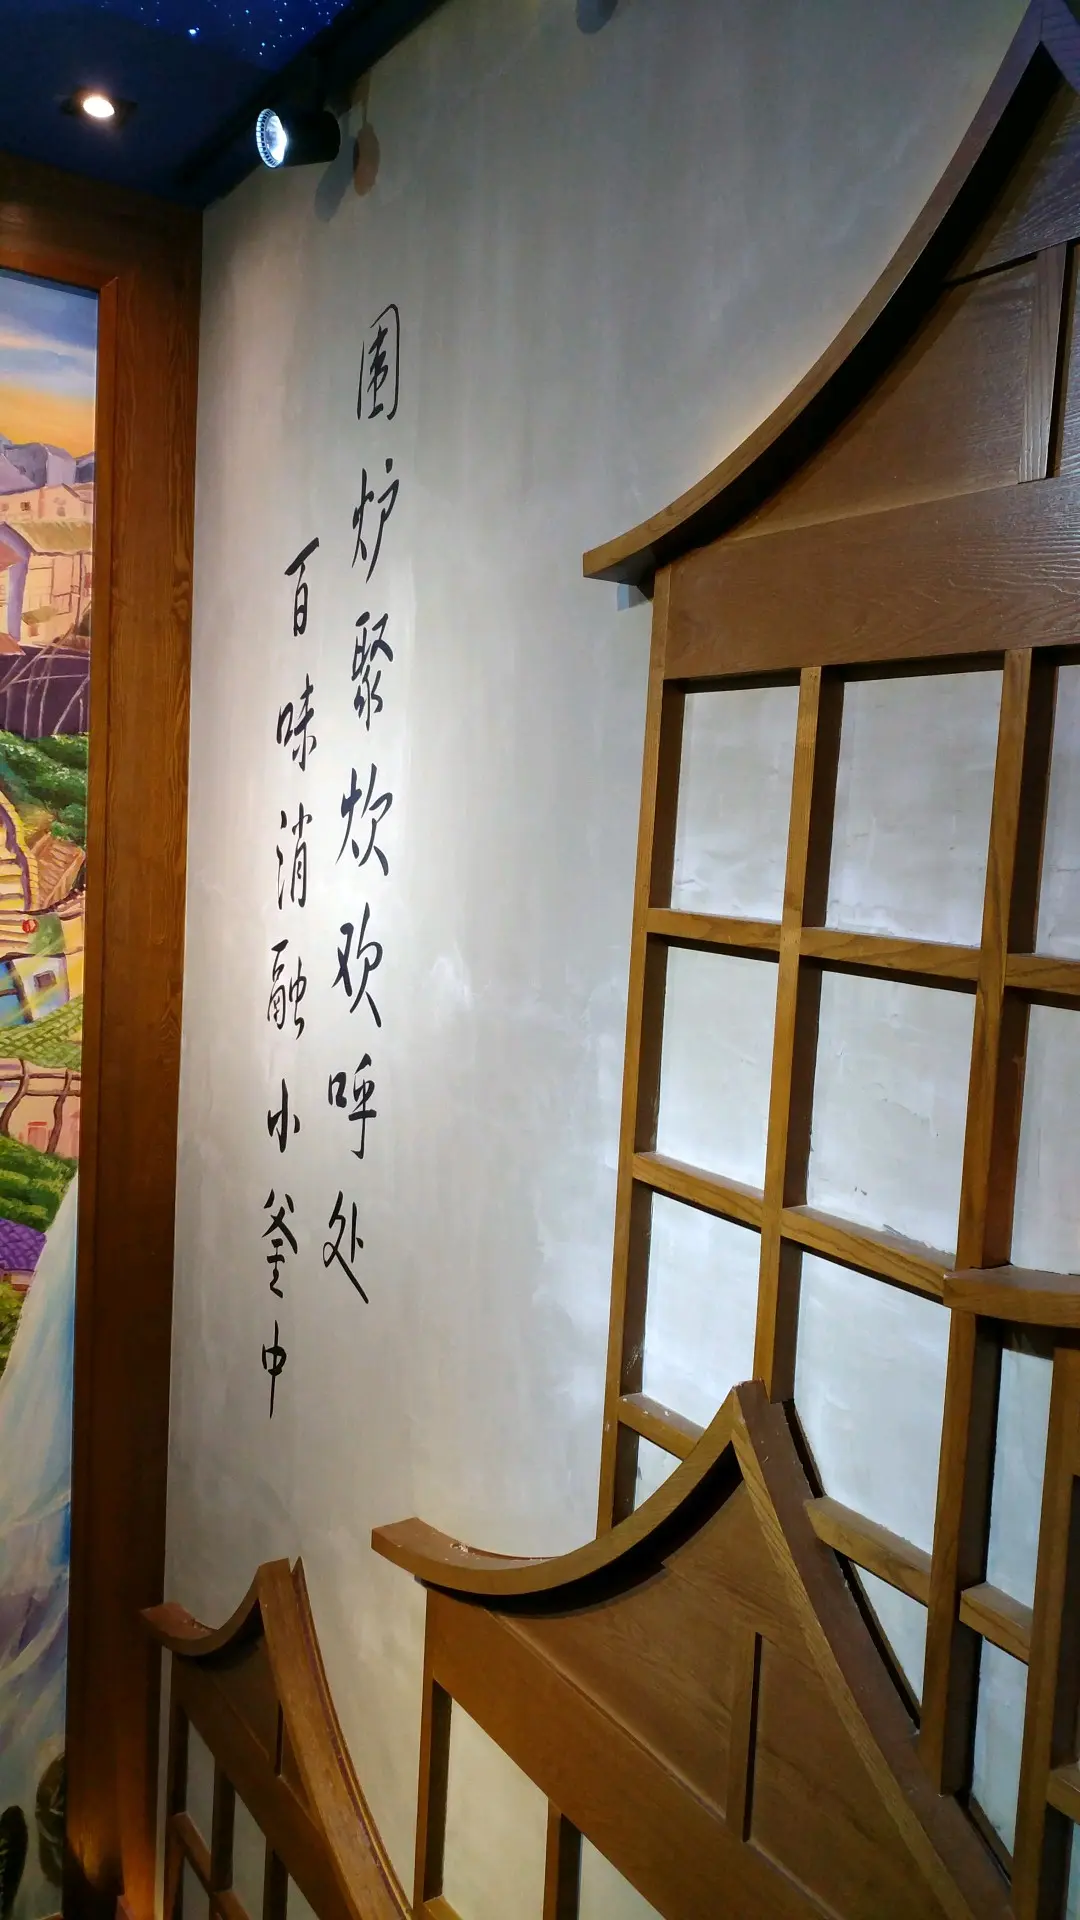 围炉聚炊欢呼处
百味消融小釜中